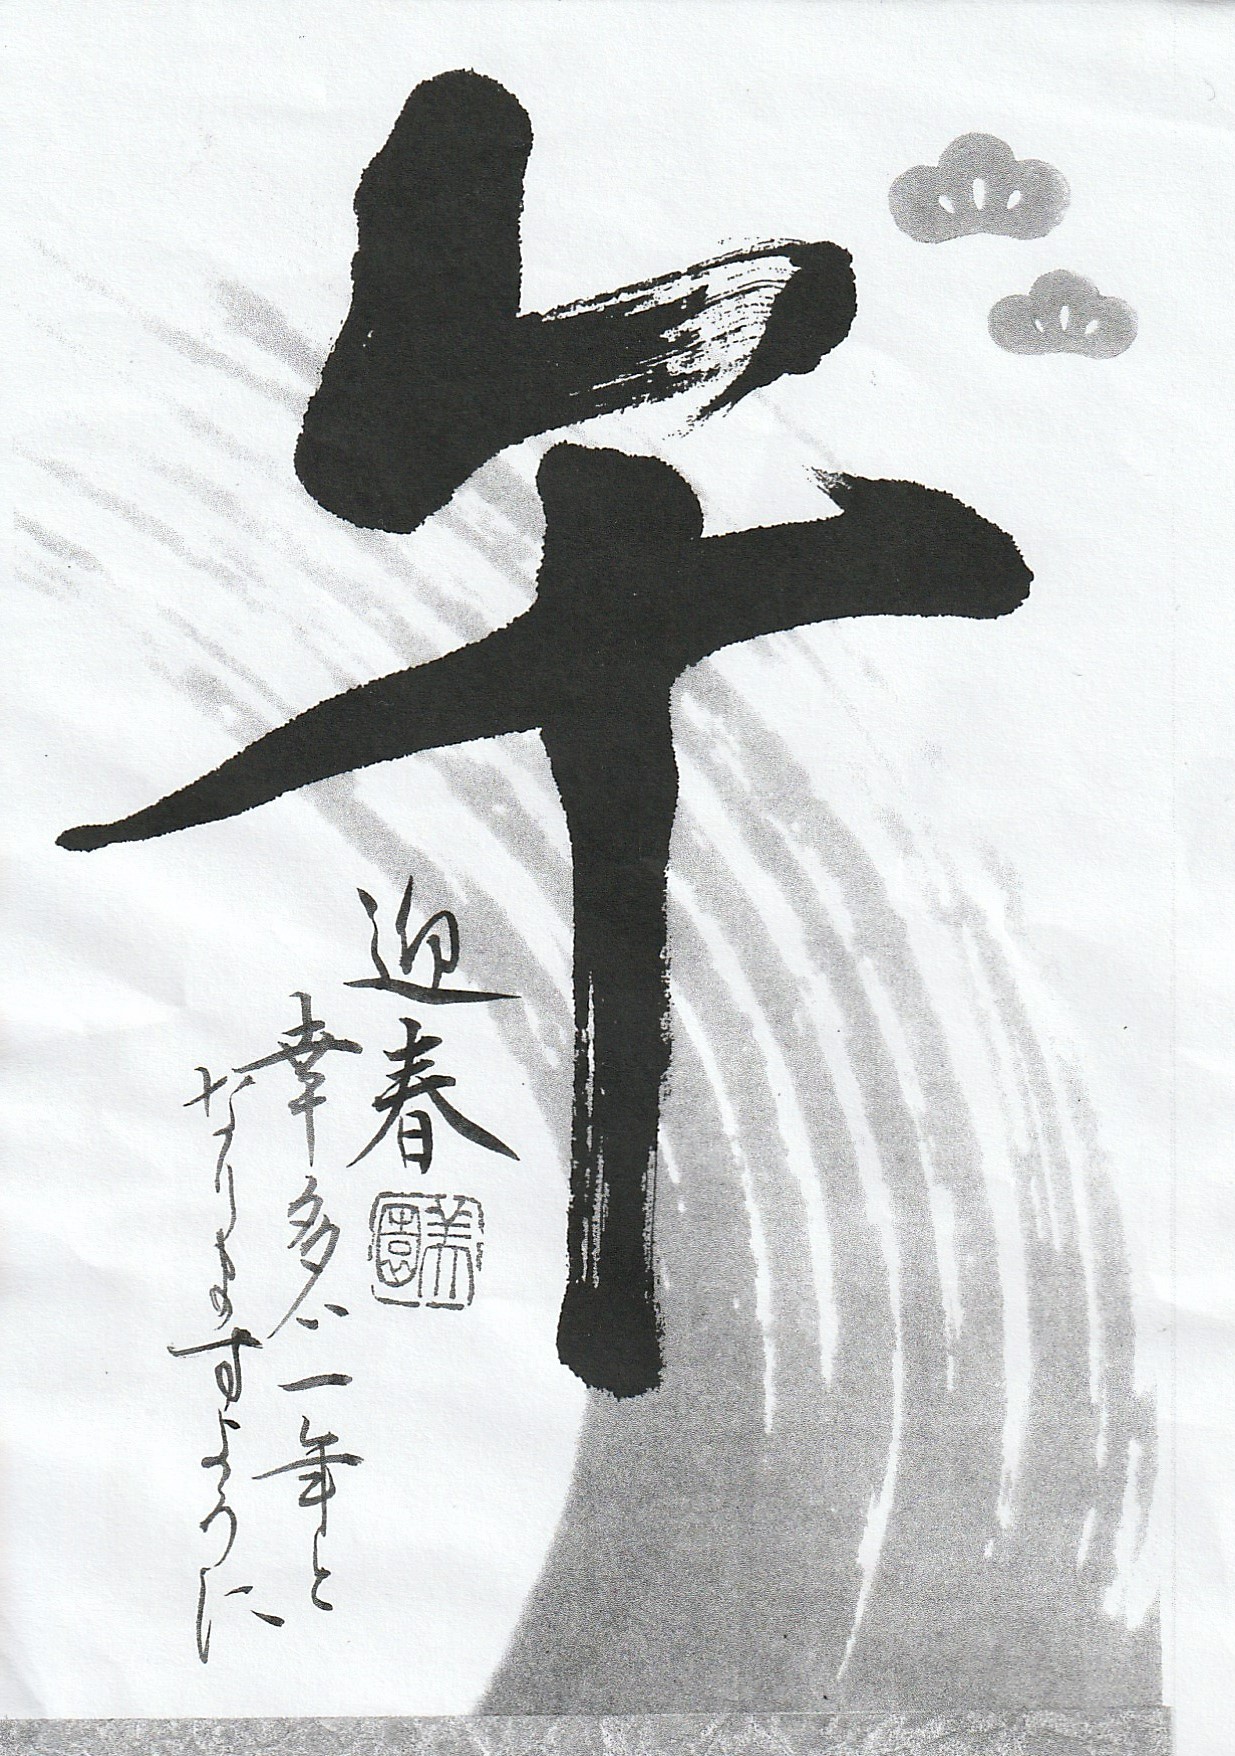 午
迎春
幸多い一年と
なりますように